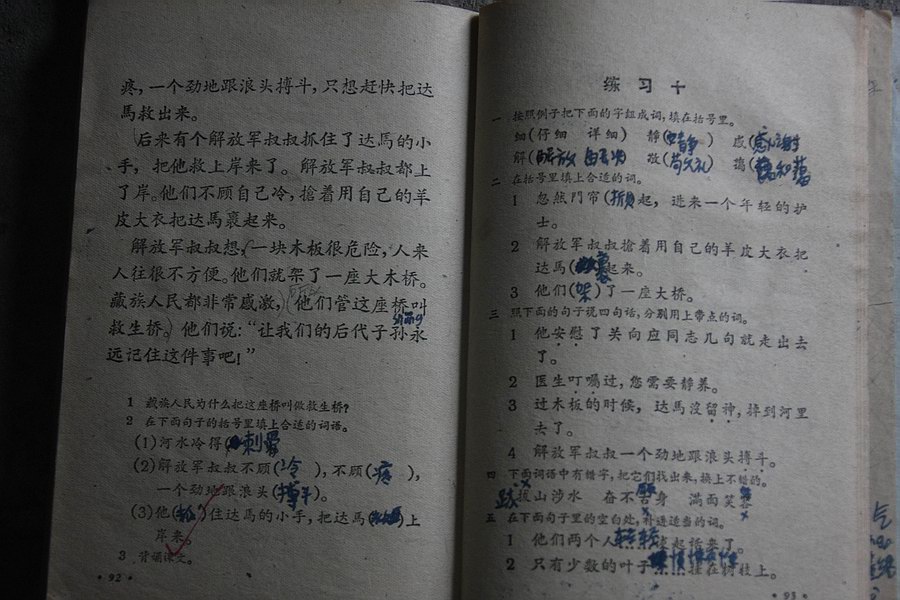 疼，一个劲地跟浪头搏斗，只想赶快把达
馬救出来。
后来有个解放軍叔叔抓住了达馬的小
手，把他救上岸来了。解放軍叔叔都上
了岸。他们不顾自己冷，搶着用自己的羊
皮大衣把达馬裹起来。
解放軍叔叔想，一块木板很危险，人来
人往很不方便。他们就架了一座大木桥。
藏族人民都非常感激，他们管这座桥叫
救生桥。他们说：“让我们的后代子孙永
远记住这件事吧！”
1 藏族人民为什么把这座桥叫做救生桥？
2 在下面句子的括号里填上合适的词语。
(1)河水冷得(刺骨
(2)解放軍叔叔不顾(冷)，不顾(疼)，
一个劲地跟浪头(搏斗)。
(3)他( )住达馬的小手，把达馬( )上
岸来。
3 背诵课文。
·92·
练习十
一 按照例子把下面的字組成词，填在括号里。
细(仔细 详细) 静( 静) 感(感
解(解放 敬( 礼)
二 在括号里填上合适的词。
1 忽然門帘( 起，进来一个年轻的护
士。
2 解放軍叔叔搶着用自己的羊皮大衣把
达馬(裹起来。
3 他们(架)了一座大桥。
三 照下面的句子说四句话，分别用上带点的词。
1 他安慰了关向应同志几句就走出去
了。
2 医生叮囑过，您需要静养。
3 过木板的时候，达馬沒留神，掉到河里
去了。
4 解放軍叔叔一个劲地跟浪头搏斗。
四 下面词语中有错字，把它们找出来，换上不错的。
跋 拔山涉水 奋不 身 满面笑容
五 在下面句子里的空白处，补进适当的词。
1 他们两个人 起话来了。
2 只有少数的叶子 挂在树枝上。
·93·